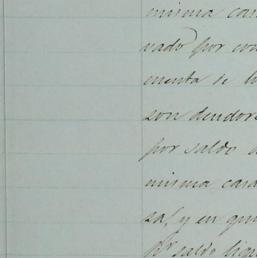 misma can
vado por con
menta de lo
son deudore
por saldo d
misma casa
sa, y en que
pr saldo liqu